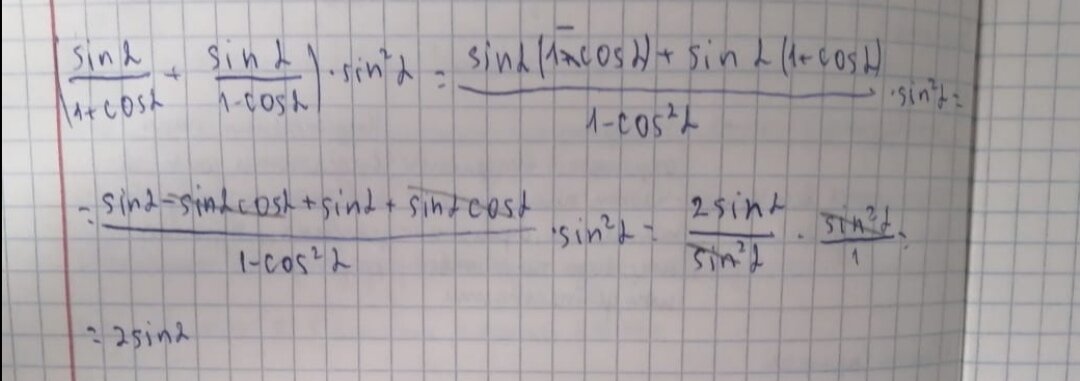 (sinα/(1+cosα) + sinα/(1-cosα)) · sin²α = (sinα(1-cosα) + sinα(1+cosα))/(1-cos²α) · sin²α =
= (sinα - sinα cosα + sinα + sinα cosα)/(1-cos²α) · sin²α = 2sinα/sin²α · sin²α/1 =
= 2sinα